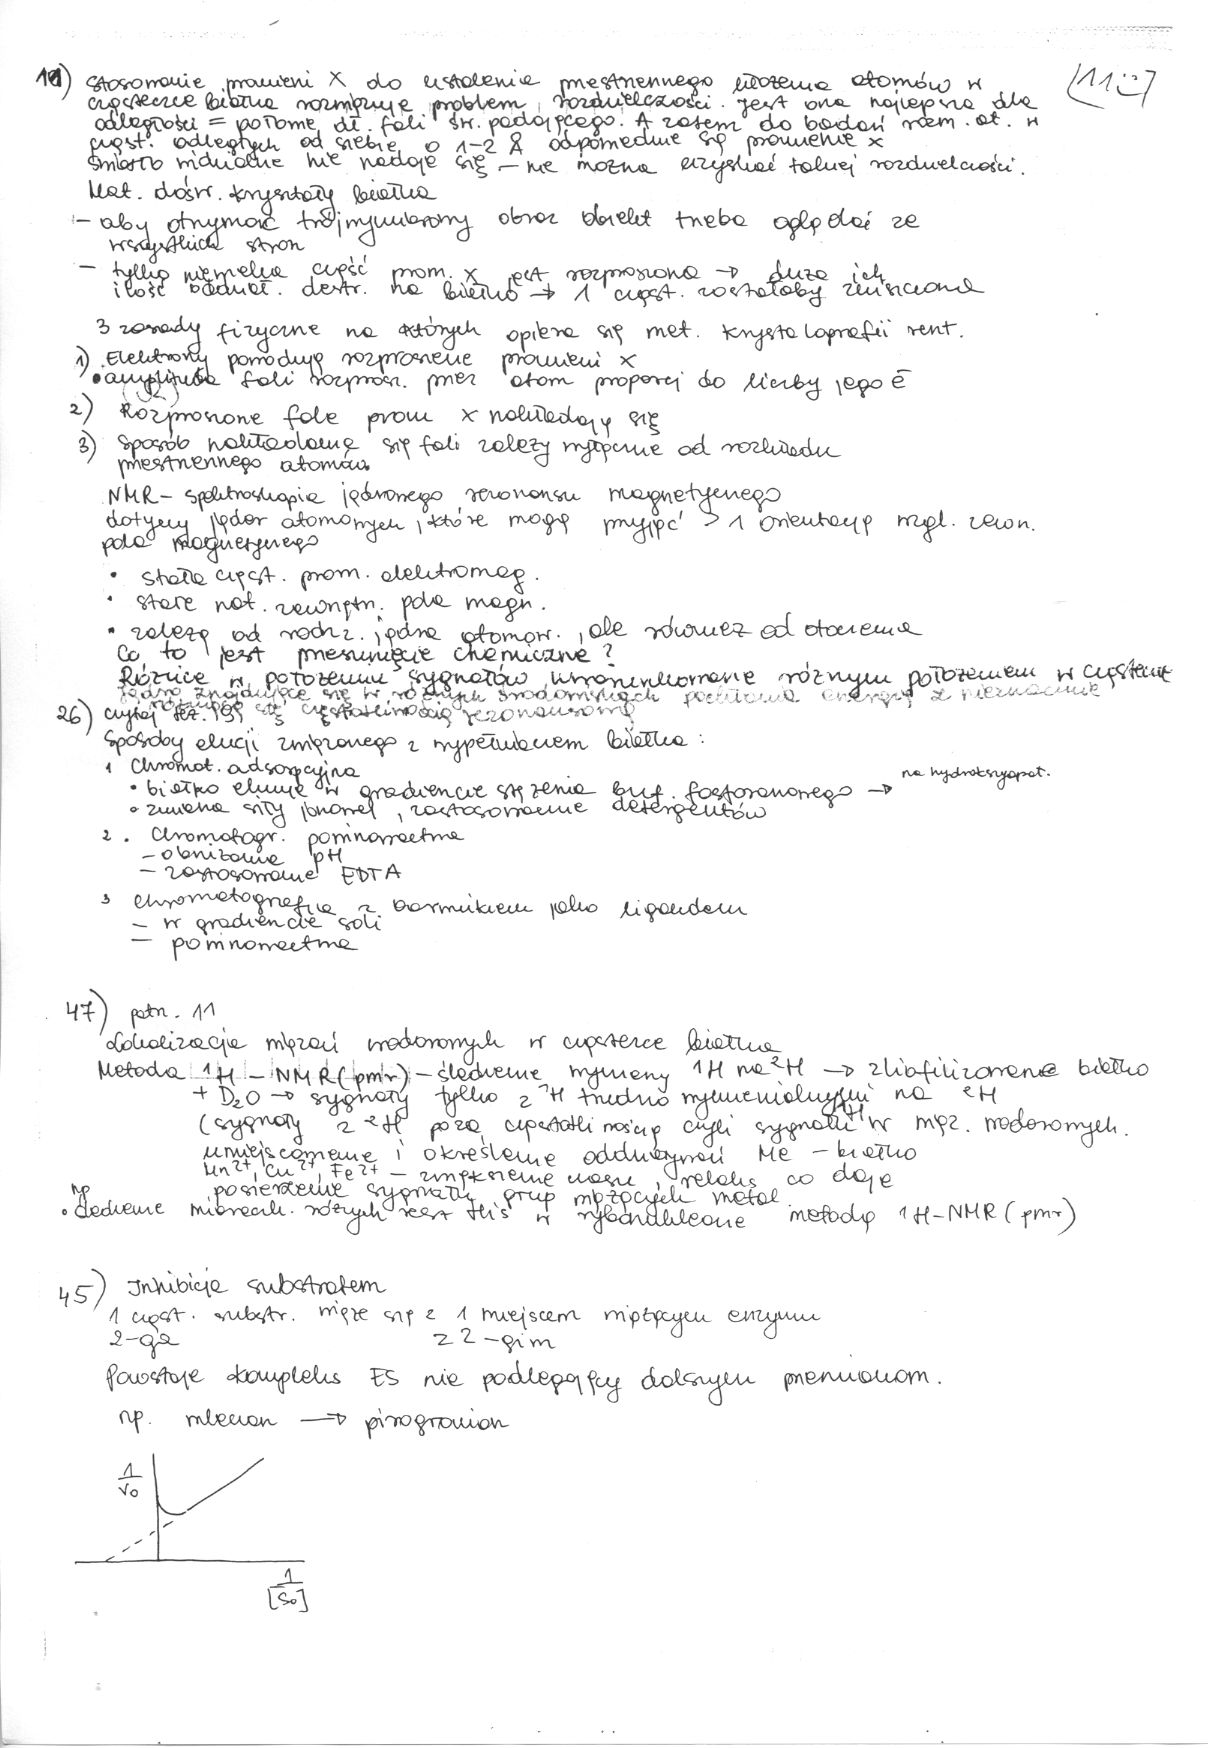 11) Stosowanie promieni X do ustalenia przestrzennego ułożenia atomów w
(11:)
cząsteczce białka rozwiązuje problem rozdzielczości. Jest ona najlepsza dla
odległości = połowie dł. fali św. padającego. A zatem do badań rozm. at. w
cząst. odległych od siebie o 1-2 Å odpowiednie są promienie X
Światło widzialne nie nadaje się – nie można uzyskać takiej rozdzielczości.
Mat. dośw. kryształy białka
– aby otrzymać trójwymiarowy obraz obiekt trzeba oglądać ze
wszystkich stron
– tylko niewielka część prom. X jest rozproszona → duża ich
ilość oddział. destr. na białko → 1 cząst. zostałaby zniszczona
3 zasady fizyczne na których opiera się met. krystalografii rent.
1) Elektrony powodują rozproszenie promieni X
• amplituda fali rozprosz. przez atom proporcj do liczby jego ē
2) Rozproszone fale prom X nakładają się
3) Sposób nakładania się fali zależy wyłącznie od rozkładu
przestrzennego atomów
NMR – spektroskopia jądrowego rezonansu magnetycznego
dotyczy jąder atomowych, które mogą przyjąć >1 orientację wzgl. zewn.
pola magnetycznego
• stała częst. prom. elektromag.
• stałe nat. zewnętrn. pola magn.
• zależą od rodz. jądra atomow., ale również od otoczenia
Co to jest przesunięcie chemiczne?
Różnice w położeniu sygnałów uwarunkowane różnym położeniem w cząsteczce
Jądra znajdujące się w różnych środowiskach pochłaniają energię z nieznacznie
różniącą się częstotliwością rezonansową
26) czytaj też. 19)
Sposoby elucji związanego z wypełniaczem białka:
1 Chromat. adsorpcyjna
• białko eluuje w gradiencie stężenia buf. fosforanowego → na hydroksyapat.
• zmiana siły jonowej, zastosowanie detergentów
2. Chromatogr. powinowactwa
– obniżanie pH
– zastosowanie EDTA
3 chromatografia z barwnikiem jako ligandem
– w gradiencie soli
– powinowactwa
47) patrz. 11
Lokalizacja wiązań wodorowych w cząsteczce białka
Metoda 1H – NMR (pmr) – śledzenie wymiany 1H na 2H → zliofilizowane białko
+ D2O → sygnały tylko z 1H trudno wymienialnymi na 2H
(sygnały z 2H poza częstotliwością czyli sygnału 1H w wiąz. wodorowych.
umiejscowienie i określenie oddziaływań Me – białko
Mn2+, Cu2+, Fe2+ – zwiększenie czasu relaks co daje
poszerzenie sygnału grup wiążących metal
np
• śledzenie miareczk. różnych reszt His w rybonukleazie metodą 1H-NMR (pmr)
45) Inhibicja substratem
1 cząst. substr. wiąże się z 1 miejscem wiążącym enzymu
2-ga z 2-gim
Powstaje kompleks ES nie podlegający dalszym przemianom.
np. mleczan → pirogronian
1
V0
1
[S0]